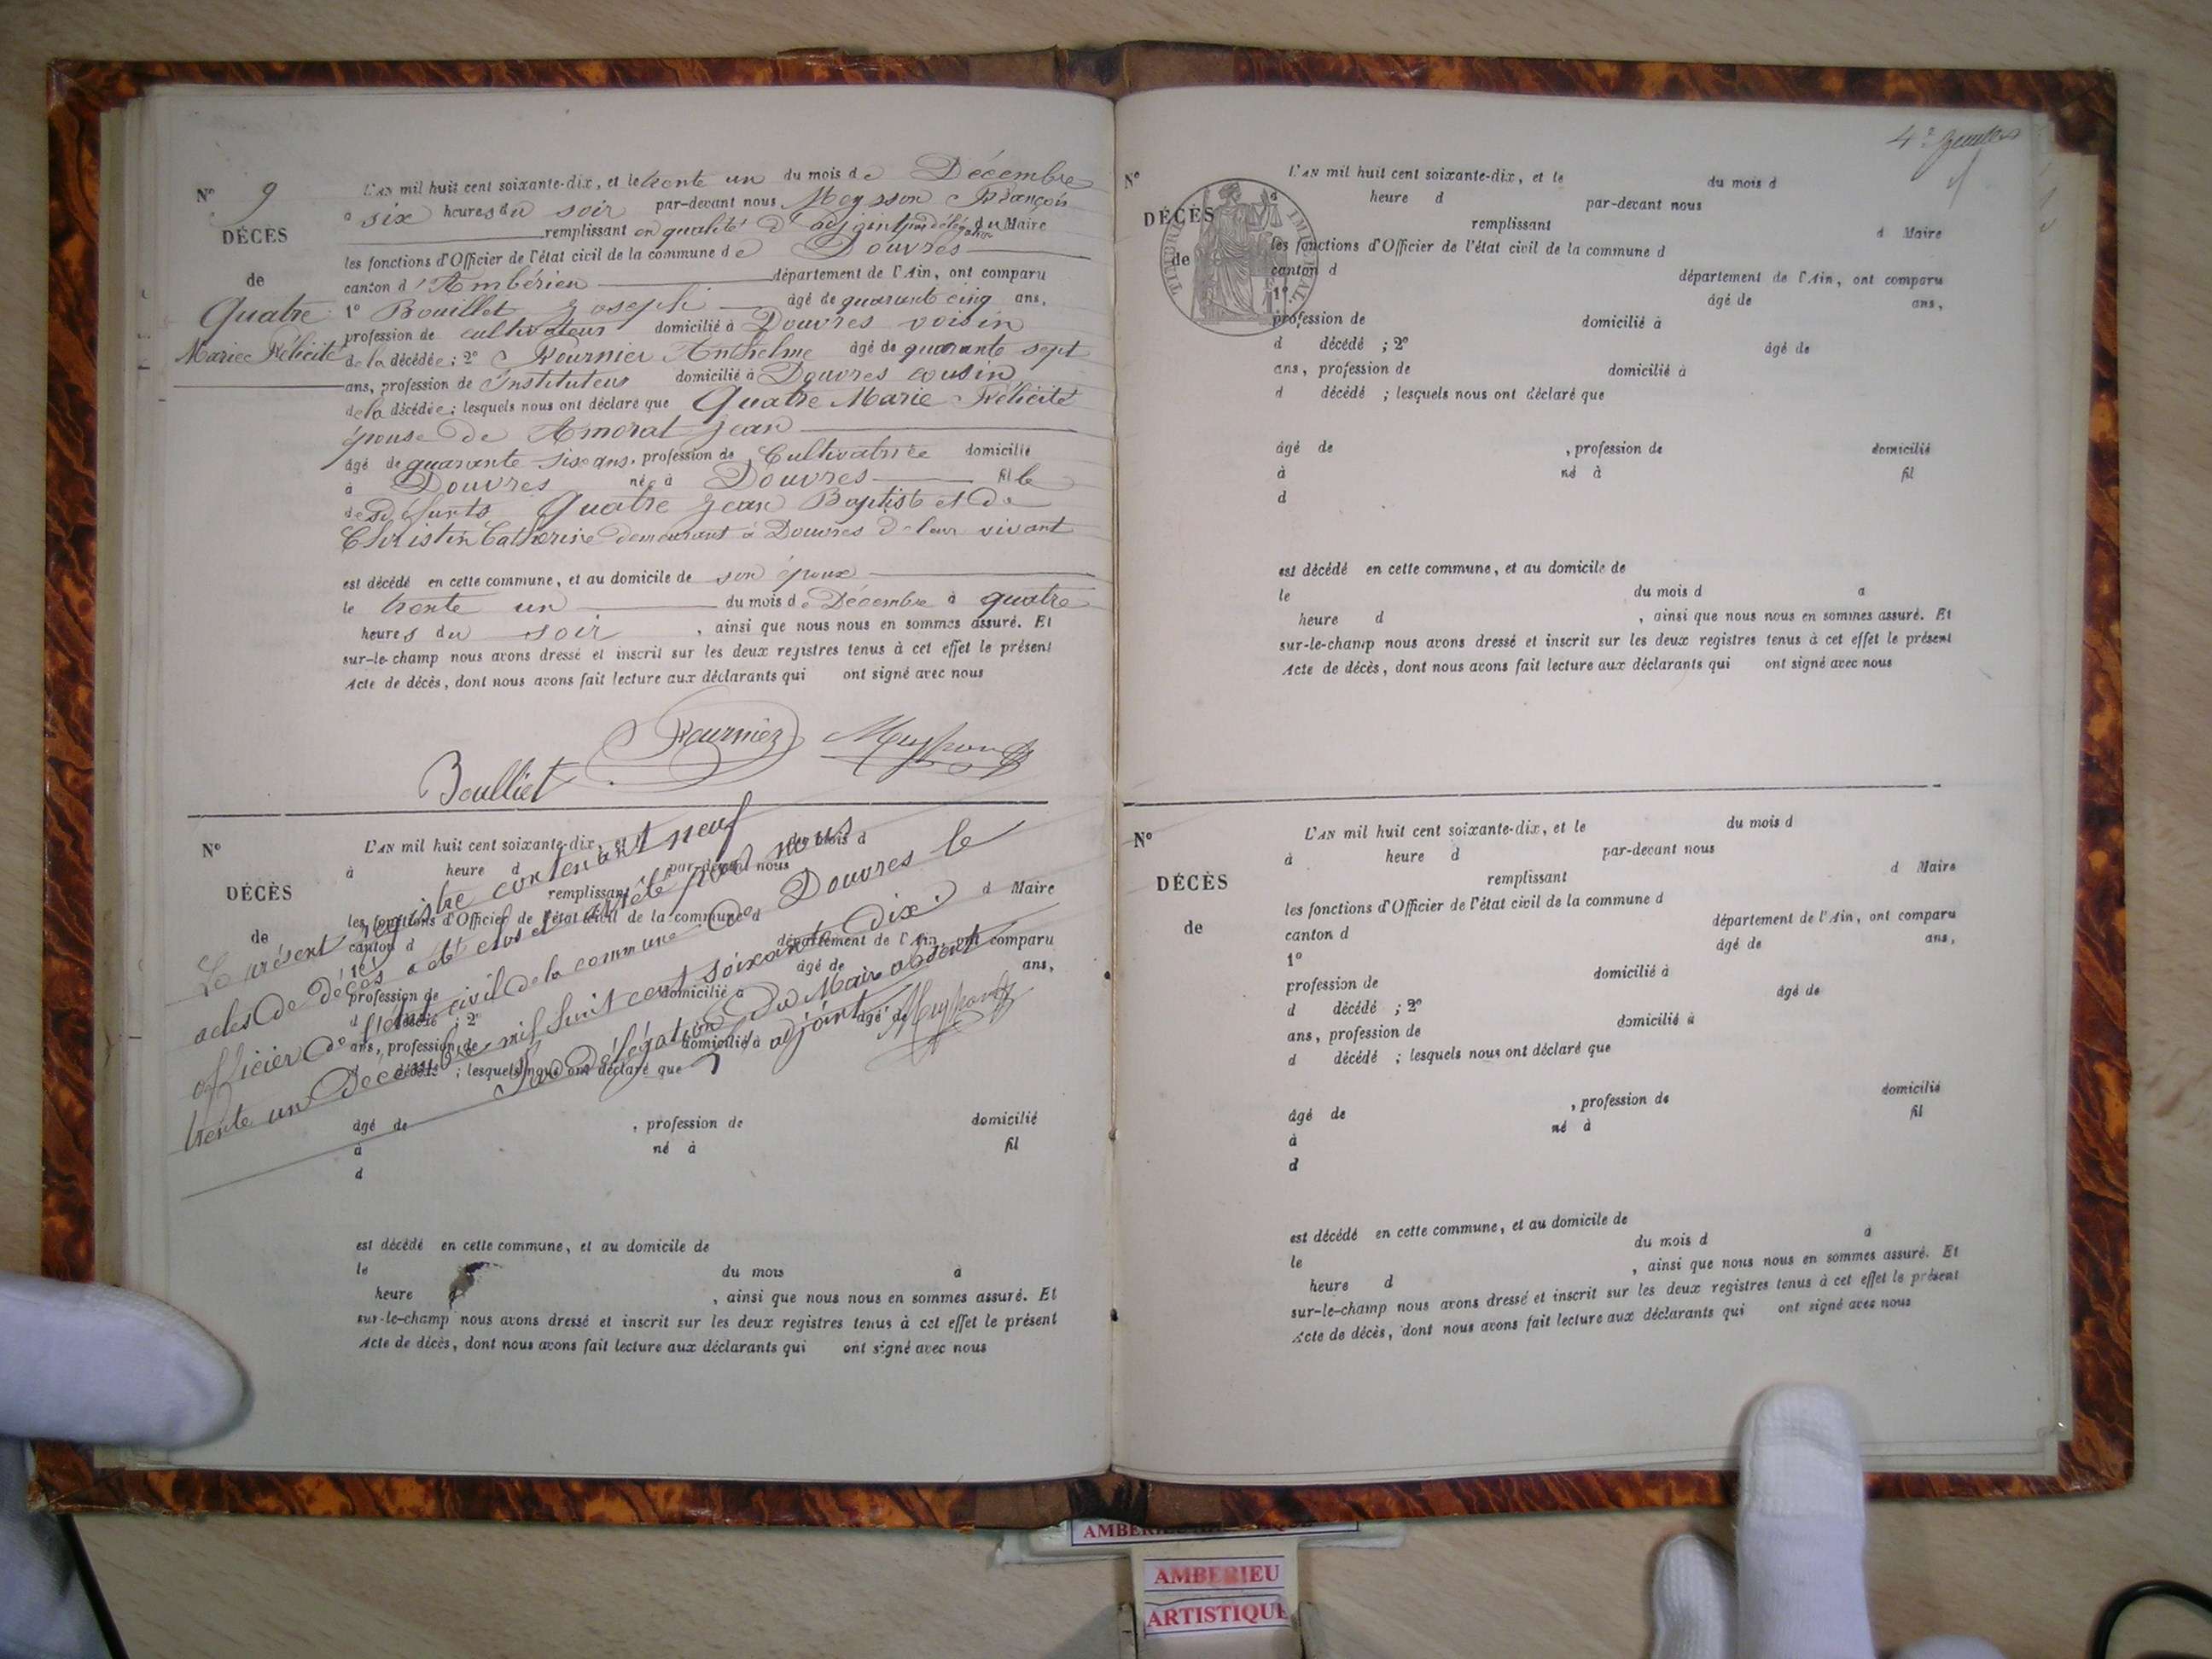 N° 9
DÉCÈS
de
Quatre
Marie Félicité
L'AN mil huit cent soixante-dix, et le trente un du mois de Décembre
à six heures du soir par-devant nous Meysson François
remplissant en qualité d'adjoint par délégation du Maire
les fonctions d'Officier de l'état civil de la commune de Douvres
canton d'Ambérieu département de l'Ain, ont comparu
1° Bouillet Joseph âgé de quarante cinq ans,
profession de cultivateur domicilié à Douvres voisin
de la décédée ; 2° Fournier Anthelme âgé de quarante sept
ans, profession de Instituteur domicilié à Douvres cousin
de la décédée ; lesquels nous ont déclaré que Quatre Marie Félicité
épouse de Amorat Jean
âgé de quarante six ans, profession de Cultivatrice domicilié
à Douvres née à Douvres fille
des défunts Quatre Jean Baptiste et de
Christin Catherine demeurant à Douvres de leur vivant
est décédé en cette commune, et au domicile de son époux
le trente un du mois de Décembre à quatre
heures du soir , ainsi que nous nous en sommes assuré. Et
sur-le-champ nous avons dressé et inscrit sur les deux registres tenus à cet effet le présent
Acte de décès, dont nous avons fait lecture aux déclarants qui ont signé avec nous
Fournier Meysson
Boulliet
N°
DÉCÈS
de
L'AN mil huit cent soixante-dix, et le du mois d
à heure d par-devant nous
remplissant d Maire
les fonctions d'Officier de l'état civil de la commune d
canton d département de l'Ain, ont comparu
1° âgé de ans,
profession de domicilié à
d décédé ; 2° âgé de
ans, profession de domicilié à
d décédé ; lesquels nous ont déclaré que
Le présent registre contenant neuf
actes de décès a été clos et arrêté par nous
officier de l'état civil de la commune de Douvres le
trente un Décembre mil huit cent soixante dix.
Par délégation du Maire absent
L'adjoint Meysson
âgé de , profession de domicilié
à né à fil
d
est décédé en cette commune, et au domicile de
le du mois à
heure , ainsi que nous nous en sommes assuré. Et
sur-le-champ nous avons dressé et inscrit sur les deux registres tenus à cet effet le présent
Acte de décès, dont nous avons fait lecture aux déclarants qui ont signé avec nous
4e feuillet
N°
DÉCÈS
de
TIMBRE IMPERIAL
L'AN mil huit cent soixante-dix, et le du mois d
heure d par-devant nous
remplissant d Maire
les fonctions d'Officier de l'état civil de la commune d
canton d département de l'Ain, ont comparu
1° âgé de ans,
profession de domicilié à
d décédé ; 2° âgé de
ans, profession de domicilié à
d décédé ; lesquels nous ont déclaré que
âgé de , profession de domicilié
à né à fil
d
est décédé en cette commune, et au domicile de
le du mois d a
heure d , ainsi que nous nous en sommes assuré. Et
sur-le-champ nous avons dressé et inscrit sur les deux registres tenus à cet effet le présent
Acte de décès, dont nous avons fait lecture aux déclarants qui ont signé avec nous
N°
DÉCÈS
de
L'AN mil huit cent soixante-dix, et le du mois d
à heure d par-devant nous
remplissant d Maire
les fonctions d'Officier de l'état civil de la commune d
canton d département de l'Ain, ont comparu
1° âgé de ans,
profession de domicilié à
d décédé ; 2° âgé de
ans, profession de domicilié à
d décédé ; lesquels nous ont déclaré que
âgé de , profession de domicilié
à né à fil
d
est décédé en cette commune, et au domicile de
le du mois d à
heure d , ainsi que nous nous en sommes assuré. Et
sur-le-champ nous avons dressé et inscrit sur les deux registres tenus à cet effet le présent
Acte de décès, dont nous avons fait lecture aux déclarants qui ont signé avec nous
AMBERIEU
ARTISTIQUE